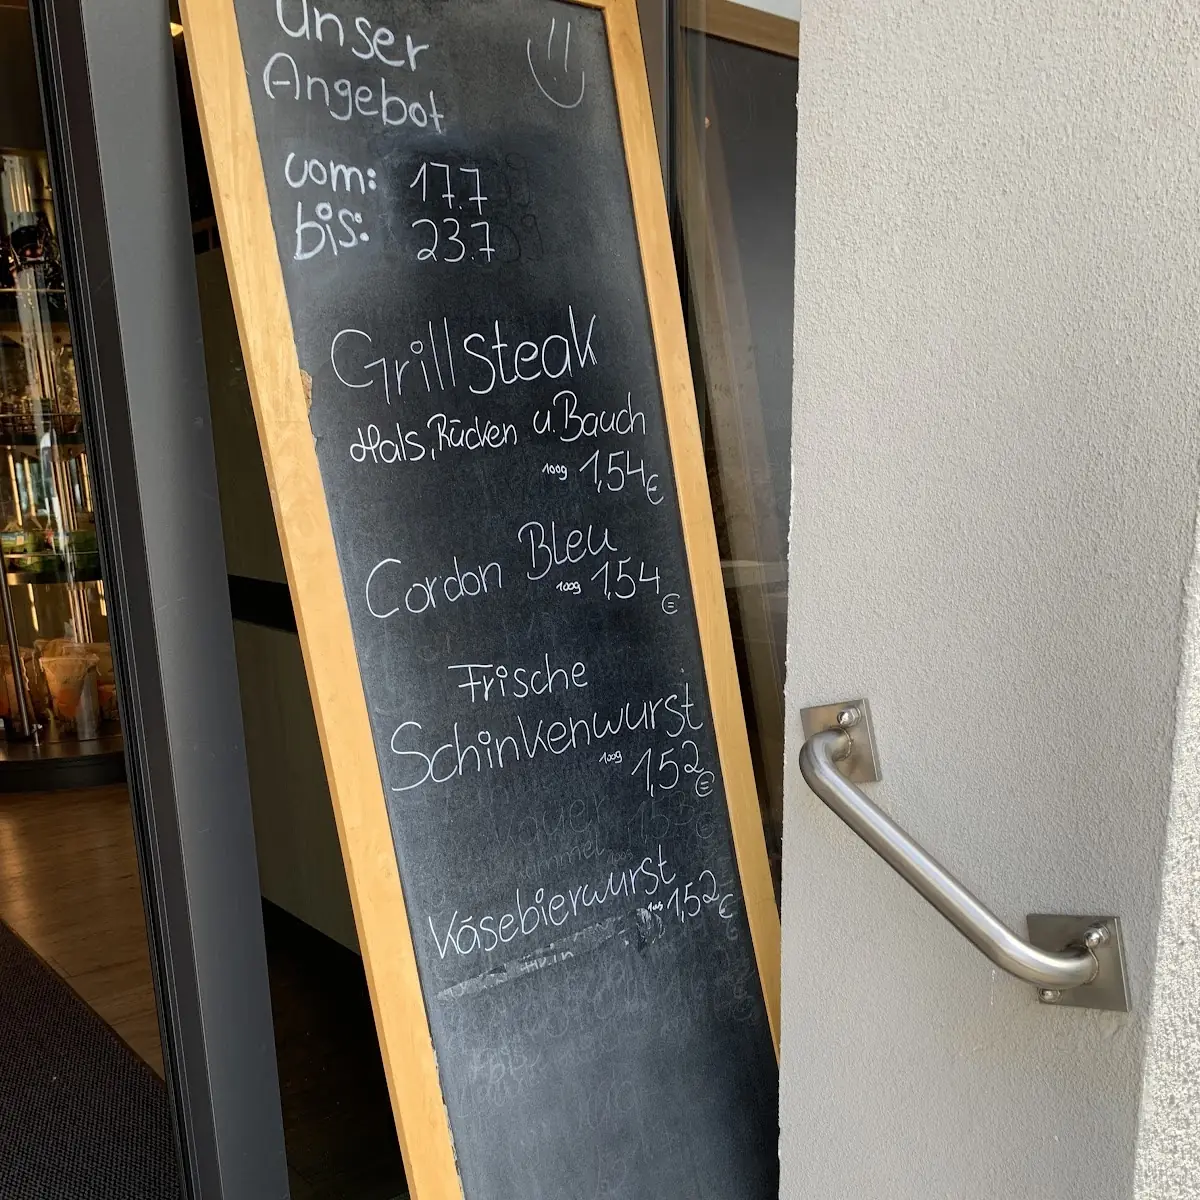 Unser
Angebot
vom: 17.7
bis: 23.7
Grillsteak
Hals, Rücken u. Bauch
100g 1,54€
Cordon Bleu
100g 1,54
€
Frische
Schinkenwurst
100g 1,52€
Käsebierwurst
100g 1,52€